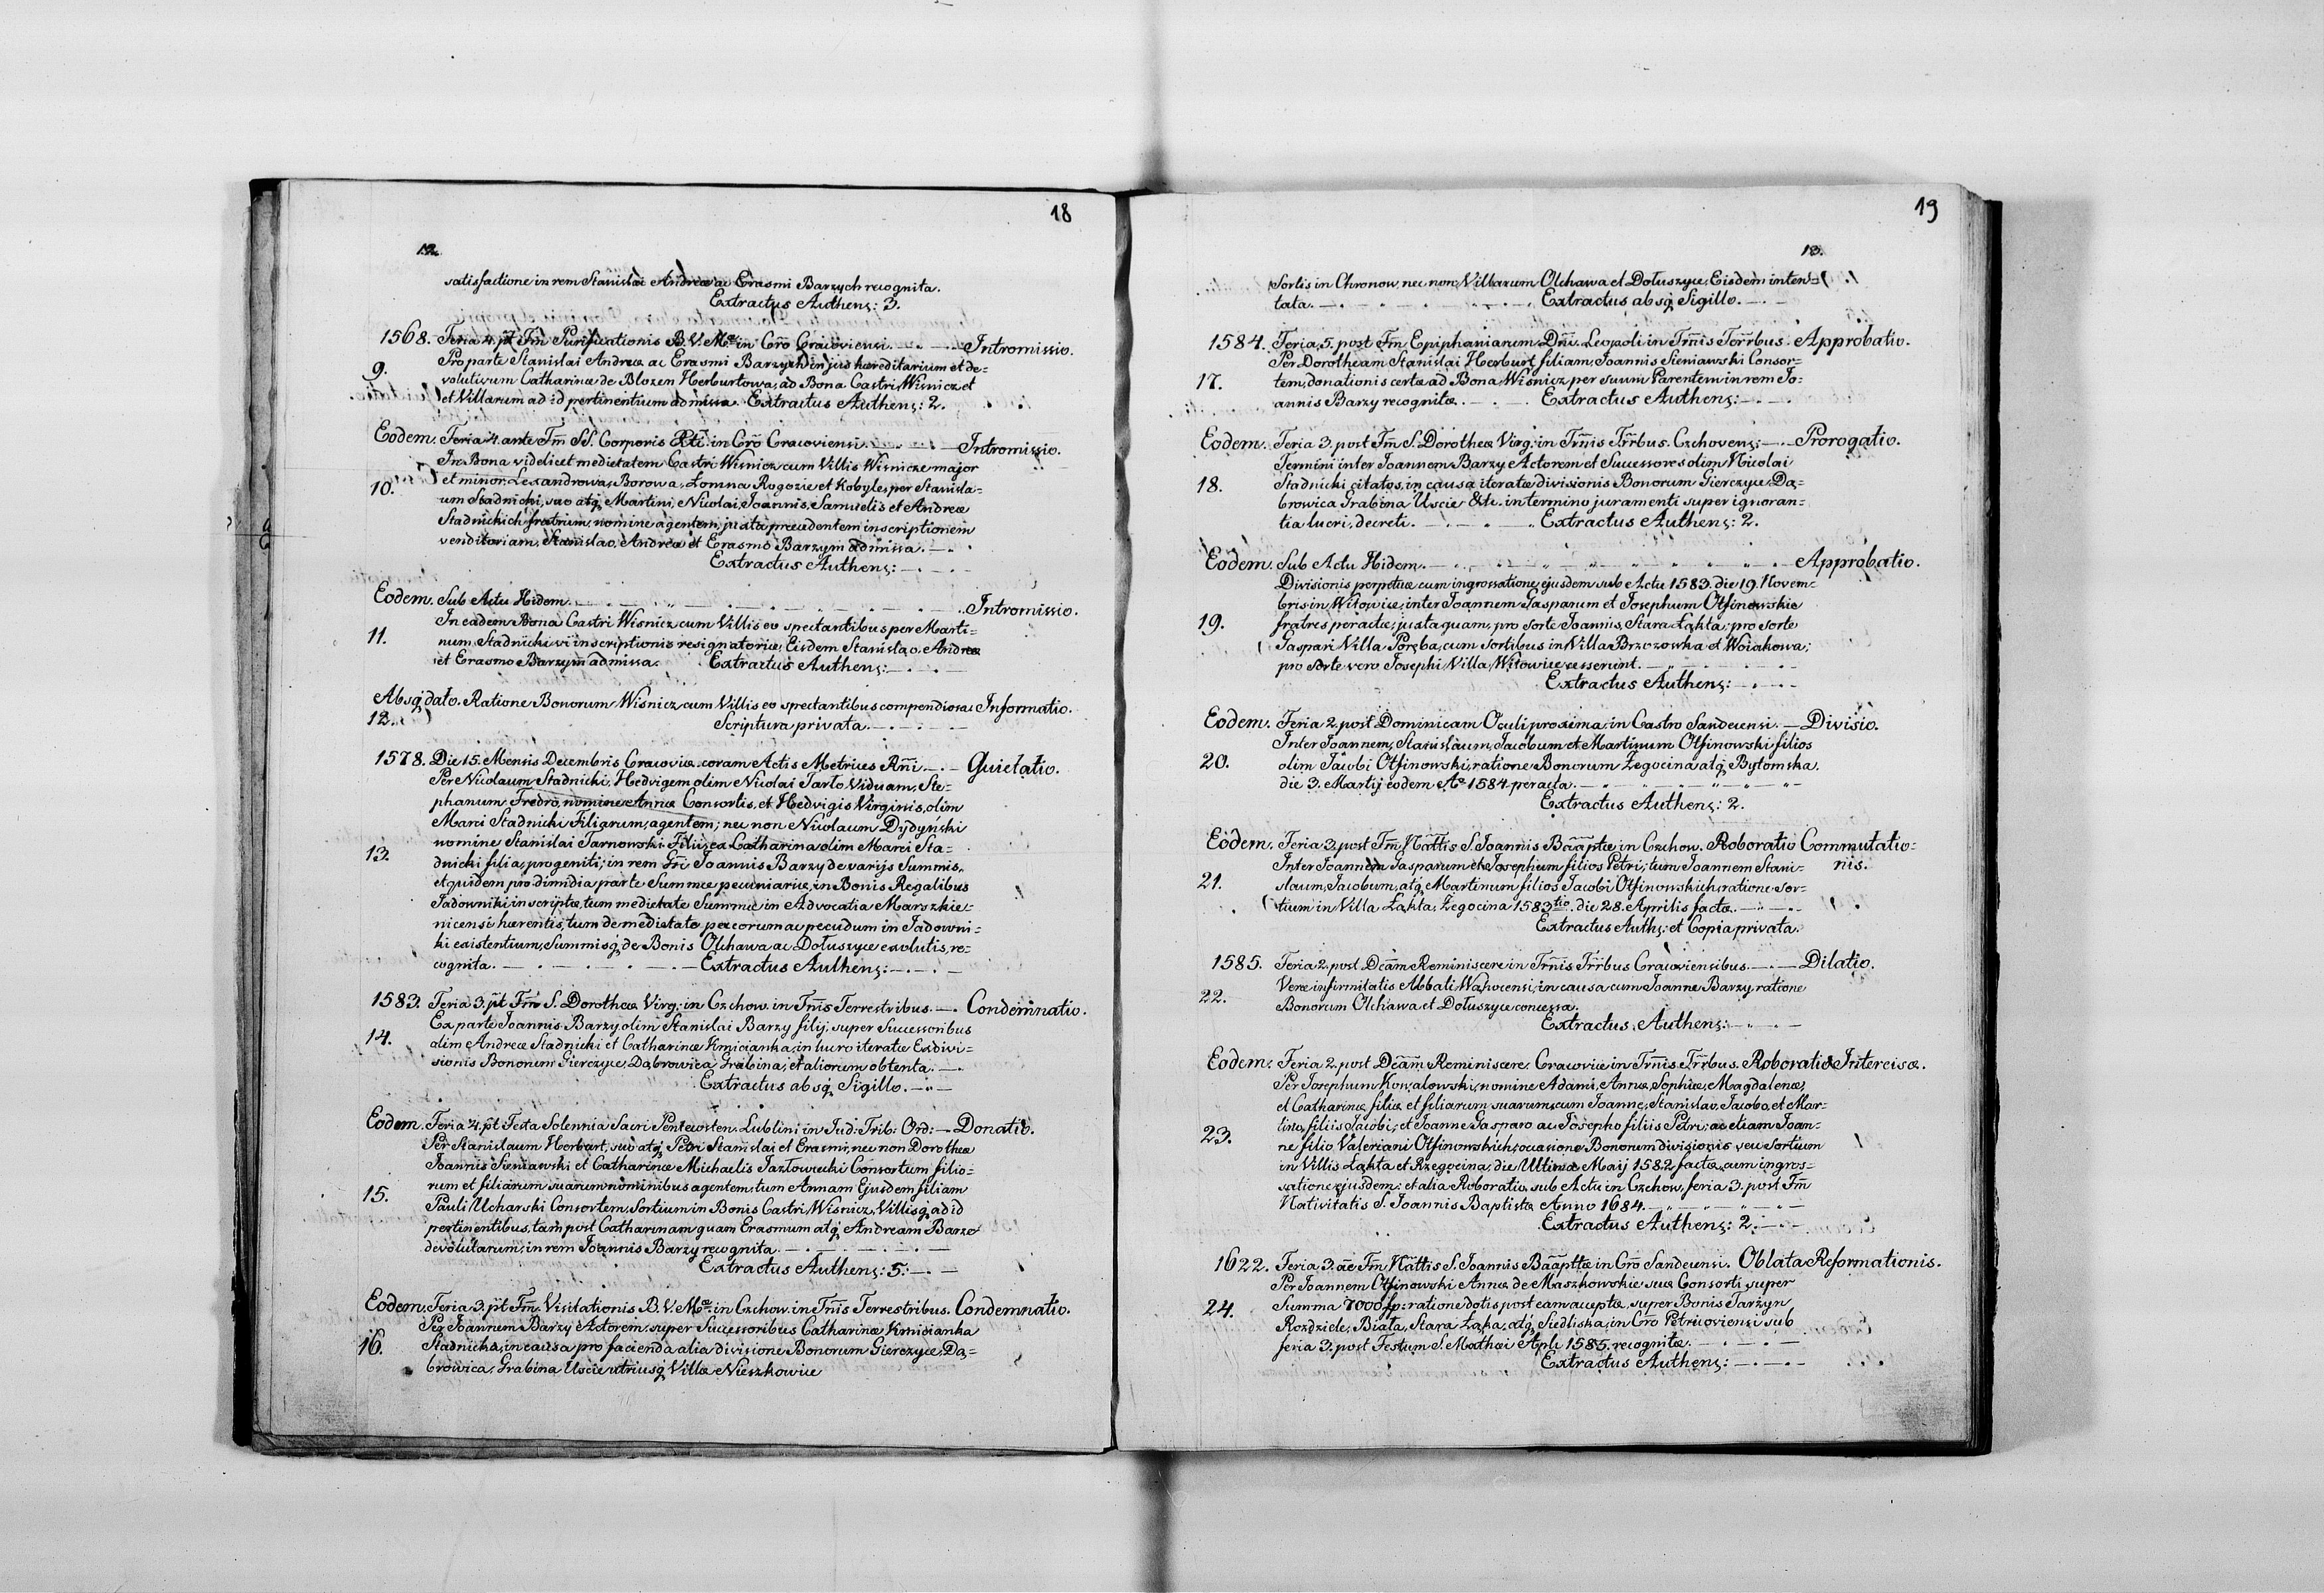 18
12.
satisfactione in rem Stanislai Andreæ ac Erasmi Barzych recognita.
Extractus Authens: 3.
1568. Feria 4. pt Fm̄ Purificationis B. V. Mæ in Crō Cracoviensi. Intromissio.
Pro parte Stanislai Andreæ ac Erasmi Barzych in jus hæreditarium et de=
9. volutivum Catharinæ de Blozen Herburtowa, ad Bona Castri Wisnicz et
et Villarum ad id pertinentium admissa. Extractus Authens: 2.
Eodem. Feria 4. ante Fm̄ SS. Corporis Xti in Crō Cracoviensi. Intromissio.
In Bona videlicet medietatem Castri Wisnicz cum Villis Wisnicze major
10. et minor, Lexandrowa, Borowa, Łomna Rogozie et Kobyle, per Stanisla=
um Stadnicki, suo atq Martini, Nicolai, Joannis, Samuelis et Andreæ
Stadnickich fratrum, nomine agentem, juxta præcedentem inscriptionem
venditoriam, Stanislao, Andreæ et Erasmo Barzym admissa.
Extractus Authens:
Eodem. Sub Actu Hidem. Intromissio.
In eadem Bona Castri Wisnicz cum Villis eo spectantibus per Marti=
11. num Stadnicki vi inscriptionis resignatoriæ, Eisdem Stanislao, Andreæ
et Erasmo Barzym admissa. Extractus Authens:
Absq dato. Ratione Bonorum Wisnicz cum Villis eo spectantibus compendiosa Informatio.
12. Scriptura privata.
1578. Die 15. Mensis Decembris Cracoviæ coram Actis Metrices Rn̄i. Quietatio.
Per Nicolaum Stadnicki, Hedvigem olim Nicolai Tarlo Viduam, Ste=
phanum Fredro, nomine Annæ Consortis, et Hedvigis Virginis, olim
Marci Stadnicki Filiarum, agentem; nec non Nicolaum Dydyński
nomine Stanislai Tarnowski Filii, ex Catharina olim Marci Sta=
13. dnicki filia, progeniti; in rem Gr̄i Joannis Barzy de varijs Summis,
et quidem pro dimidia parte Summæ pecuniariæ, in Bonis Regalibus
Jadowniki inscriptæ, tum medietate Summæ in Advocatia Marszkie=
nicensi hærentis, tum de medietate pecorum ac pecudum in Jadowni=
ki existentium, Summisq de Bonis Olchawa ac Dołuszyce exolutis, re=
cognita. Extractus Authens:
1583. Feria 3. pt Fm̄ S. Dorotheæ Virg: in Czchow in Tm̄is Terrestribus. Condemnatio.
Ex parte Joannis Barzy olim Stanislai Barzy filij super Successoribus
14. olim Andreæ Stadnicki et Catharinæ Kmicianka, in lucro iteratæ Exdivi=
sionis Bonorum Gierczyce, Dąbrowica, Grabina, et aliorum obtenta.
Extractus absq Sigillo.
Eodem. Feria 4. pt Festa Solennia Sacri Pentecosten. Lublini in Jud: Trib: Ord: Donatio.
Per Stanislaum Herburt, suo atq Petri Stanislai et Erasmi, nec non Dorotheæ
Joannis Sieniawski et Catharinæ Michaelis Jazłowiecki Consortum filio=
rum et filiarum suarum nominibus agentem, tum Annam Ejusdem filiam
15. Pauli Ucharski Consortem, Sortium in Bonis Castri Wisnicz, Villisq ad id
pertinentibus, tam post Catharinam quam Erasmum atq Andream Barzo
devolutarum, in rem Joannis Barzy recognita.
Extractus Authens: 5.
Eodem. Feria 3. pt Fm̄ Visitationis B. V. Mæ in Czchow in Tm̄is Terrestribus. Condemnatio.
Per Joannem Barzy Actorem, super Successoribus Catharinæ Kmicianka
16. Stadnicka, in causa pro facienda alia divisione Bonorum Gierczyce, Dą=
browica, Grabina Uscie utriusq Villæ Nieszkowice
19
13.
Sortis in Chronow nec non Villarum Olchawa et Dołuszyce, Eisdem inten=
tata. Extractus absq Sigillo.
1584. Feria 5. post Fm̄ Epiphaniarum Dn̄i. Leopoli in Tm̄is Ter̄rbus. Approbatio.
Per Dorotheam Stanislai Herburt filiam, Joannis Sieniawski Consor=
17. tem, donationis certæ ad Bona Wisnicz per suum Parentem in rem Jo=
annis Barzy recognitæ. Extractus Authens:
Eodem. Feria 3. post Fm̄ S. Dorotheæ Virg: in Tm̄is Tr̄rbus. Czchovens: Prorogatio.
Termini inter Joannem Barzy Actorem et Successores olim Nicolai
18. Stadnicki citatos, in causa iteratæ divisionis Bonorum Gierczyce, Dą=
browica Grabina Uscie &c. in termino juramenti super ignoran=
tia lucri, decreti. Extractus Authens: 2.
Eodem. Sub Actu Hidem. Approbatio.
Divisionis perpetuæ cum ingrossatione ejusdem sub Actu 1583. die 19. Novem=
bris in Witowice, inter Joannem Gasparum et Josephum Otfinowskie
19. fratres peractæ; juxta quam, pro sorte Joannis, Stara Łąkta; pro sorte
Gaspari Villa Poręba, cum Sortibus in Villa Brzozowka et Woiakowa;
pro sorte vero Josephi Villa Witowice cesserint.
Extractus Authens:
Eodem. Feria 2. post Dominicam Oculi proxima in Castro Sandecensi. Divisio.
Inter Joannem, Stanislaum, Jacobum et Martinum Otfinowski filios
20. olim Jacobi Otfinowski, ratione Bonorum Zegocina atq Bytomska.
die 3. Martij eodem Ao 1584 peracta.
Extractus Authens: 2.
Eodem. Feria 3. post Fm̄ Nāttis S. Joannis Bāāptæ in Czchow. Roboratio Commutatio=
Inter Joannem Gasparum et Josephum filios Petri; tum Joannem Stani= nis.
21. slaum, Jacobum, atq Martinum filios Jacobi Otfinowskich, ratione Sor=
tium in Villa Łąkta, Zegocina 1583tio. die 28. Aprilis factæ.
Extractus Auths: et Copia privata.
1585. Feria 2. post Dcām Reminiscere in Tr̄nis Tr̄rbus Cracoviensibus. Dilatio.
Veræ infirmitatis Abbati Wąhocensi, in causa cum Joanne Barzy ratione
22. Bonorum Olchawa et Dołuszyce concessa.
Extractus Authens:
Eodem. Feria 2. post Dcām Reminiscere Cracoviæ in Tr̄nis Tr̄rbus. Roboratio Intercisæ.
Per Josephum Kowalowski, nomine Adami, Annæ, Sophiæ, Magdalenæ,
et Catharinæ filii et filiarum suarum, cum Joanne, Stanislao, Jacobo, et Mar=
tino, filiis Jacobi; et Joanne Gasparo ac Josepho filiis Petri; ac etiam Joan=
23. ne filio Valeriani Otfinowskich, occasione Bonorum divisionis seu Sortium
in Villis Łąkta et Rzegocina, die Ultima Maij 1582 factæ, cum ingros=
satione ejusdem; et alia Roboratio sub Actu in Czchow, feria 3. post Fm̄
Nativitatis S. Joannis Baptistæ Anno 1684.
Extractus Authens: 2.
1622. Feria 3. āe Fm̄ Nāttis S. Joannis Bāāpttæ in Crō Sandecensi. Oblata Reformationis.
Per Joannem Otfinowski Annæ de Maszkowskie suæ Consorti, super
24. Summa 7000 fp: ratione dotis post eam acceptæ, super Bonis Tarzyn
Rozdziele, Biała, Stara Łąka, atq Siedliska, in Crō Petricoviensi sub
feria 3. post Festum S. Mathæi Apli 1585. recognitæ.
Extractus Authens: